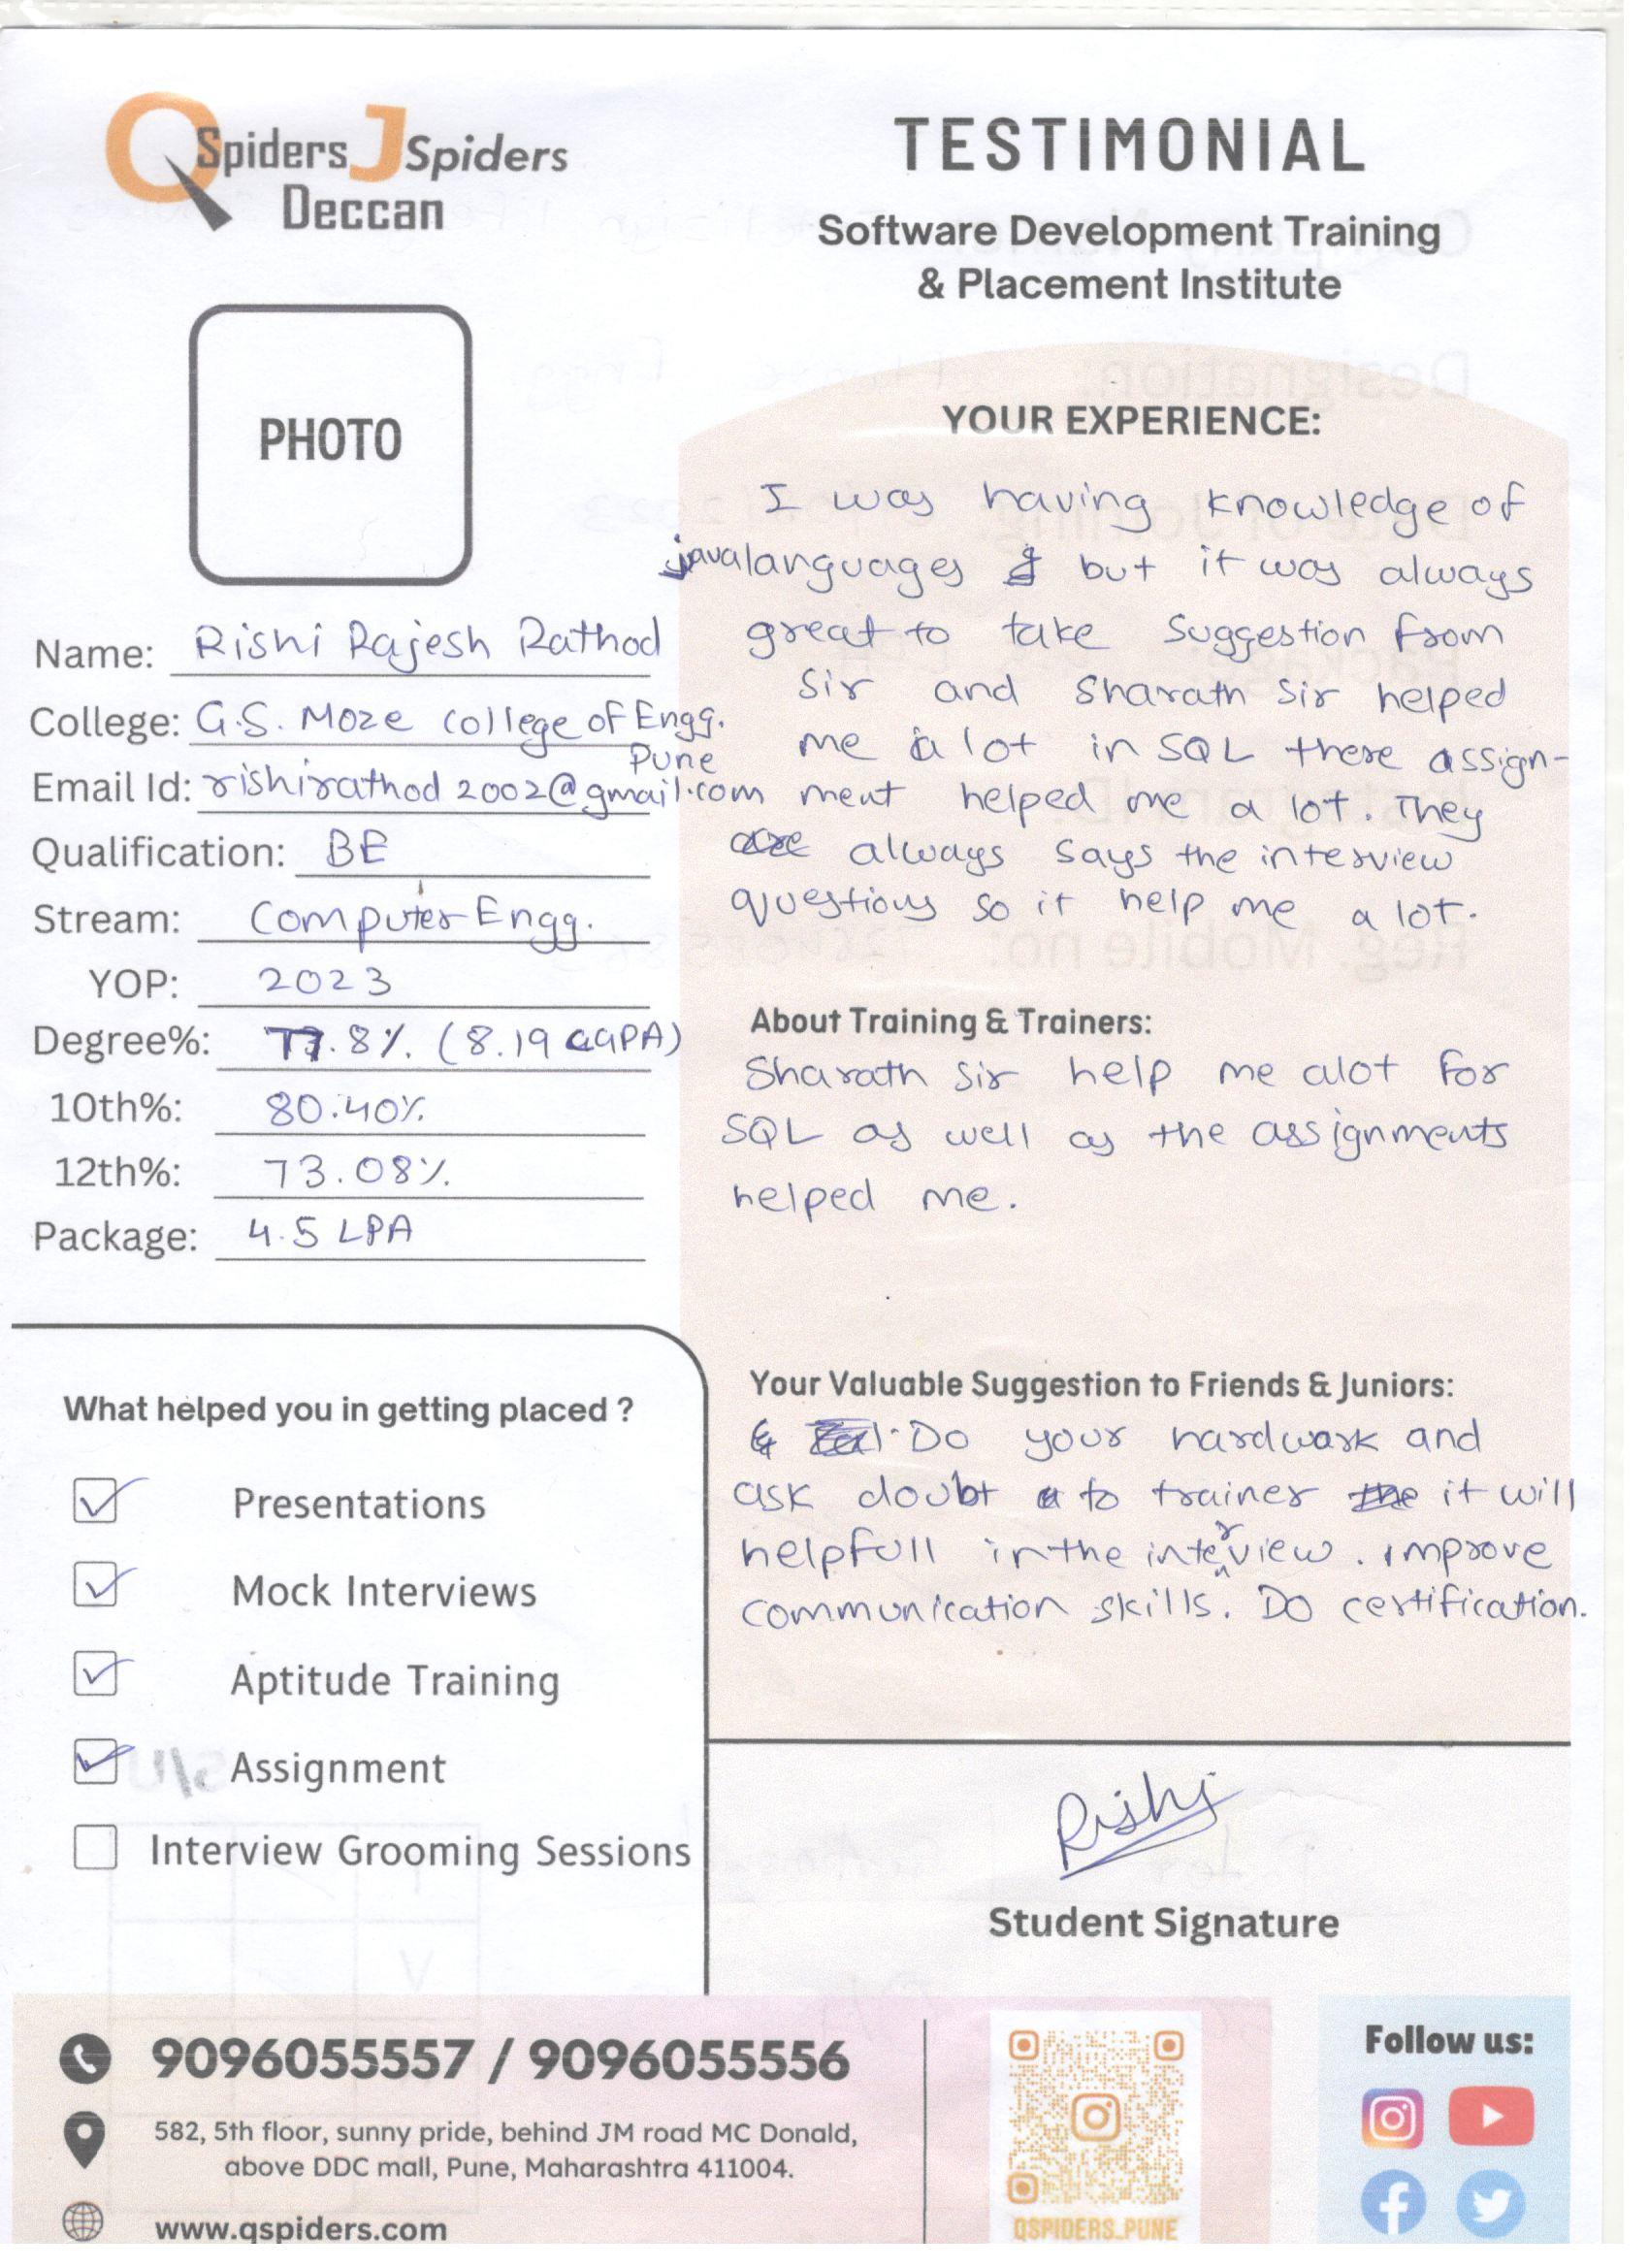 QSpiders JSpiders
Deccan
TESTIMONIAL
Software Development Training
& Placement Institute
PHOTO
Name: Rishi Rajesh Rathod
College: G.S. Moze college of Engg.
Pune
Email Id: rishirathod2002@gmail.com
Qualification: BE
Stream: Computer Engg.
YOP: 2023
Degree%: 77.8% (8.19 CGPA)
10th%: 80.40%
12th%: 73.08%
Package: 4.5 LPA
What helped you in getting placed ?
Presentations
Mock Interviews
Aptitude Training
Assignment
Interview Grooming Sessions
YOUR EXPERIENCE:
I was having knowledge of
java languages but it was always
great to take suggestion from
sir and Sharath sir helped
me a lot in SQL there assign-
ment helped me a lot. They
always says the interview
questions so it help me a lot.
About Training & Trainers:
Sharath sir help me alot for
SQL as well as the assignments
helped me.
Your Valuable Suggestion to Friends & Juniors:
Do your hardwark and
ask doubt to trainer it will
helpfull in the interview. improve
communication skills. Do certification.
Rishi
Student Signature
9096055557 / 9096055556
582, 5th floor, sunny pride, behind JM road MC Donald,
above DDC mall, Pune, Maharashtra 411004.
www.qspiders.com
QSPIDERS_PUNE
Follow us: